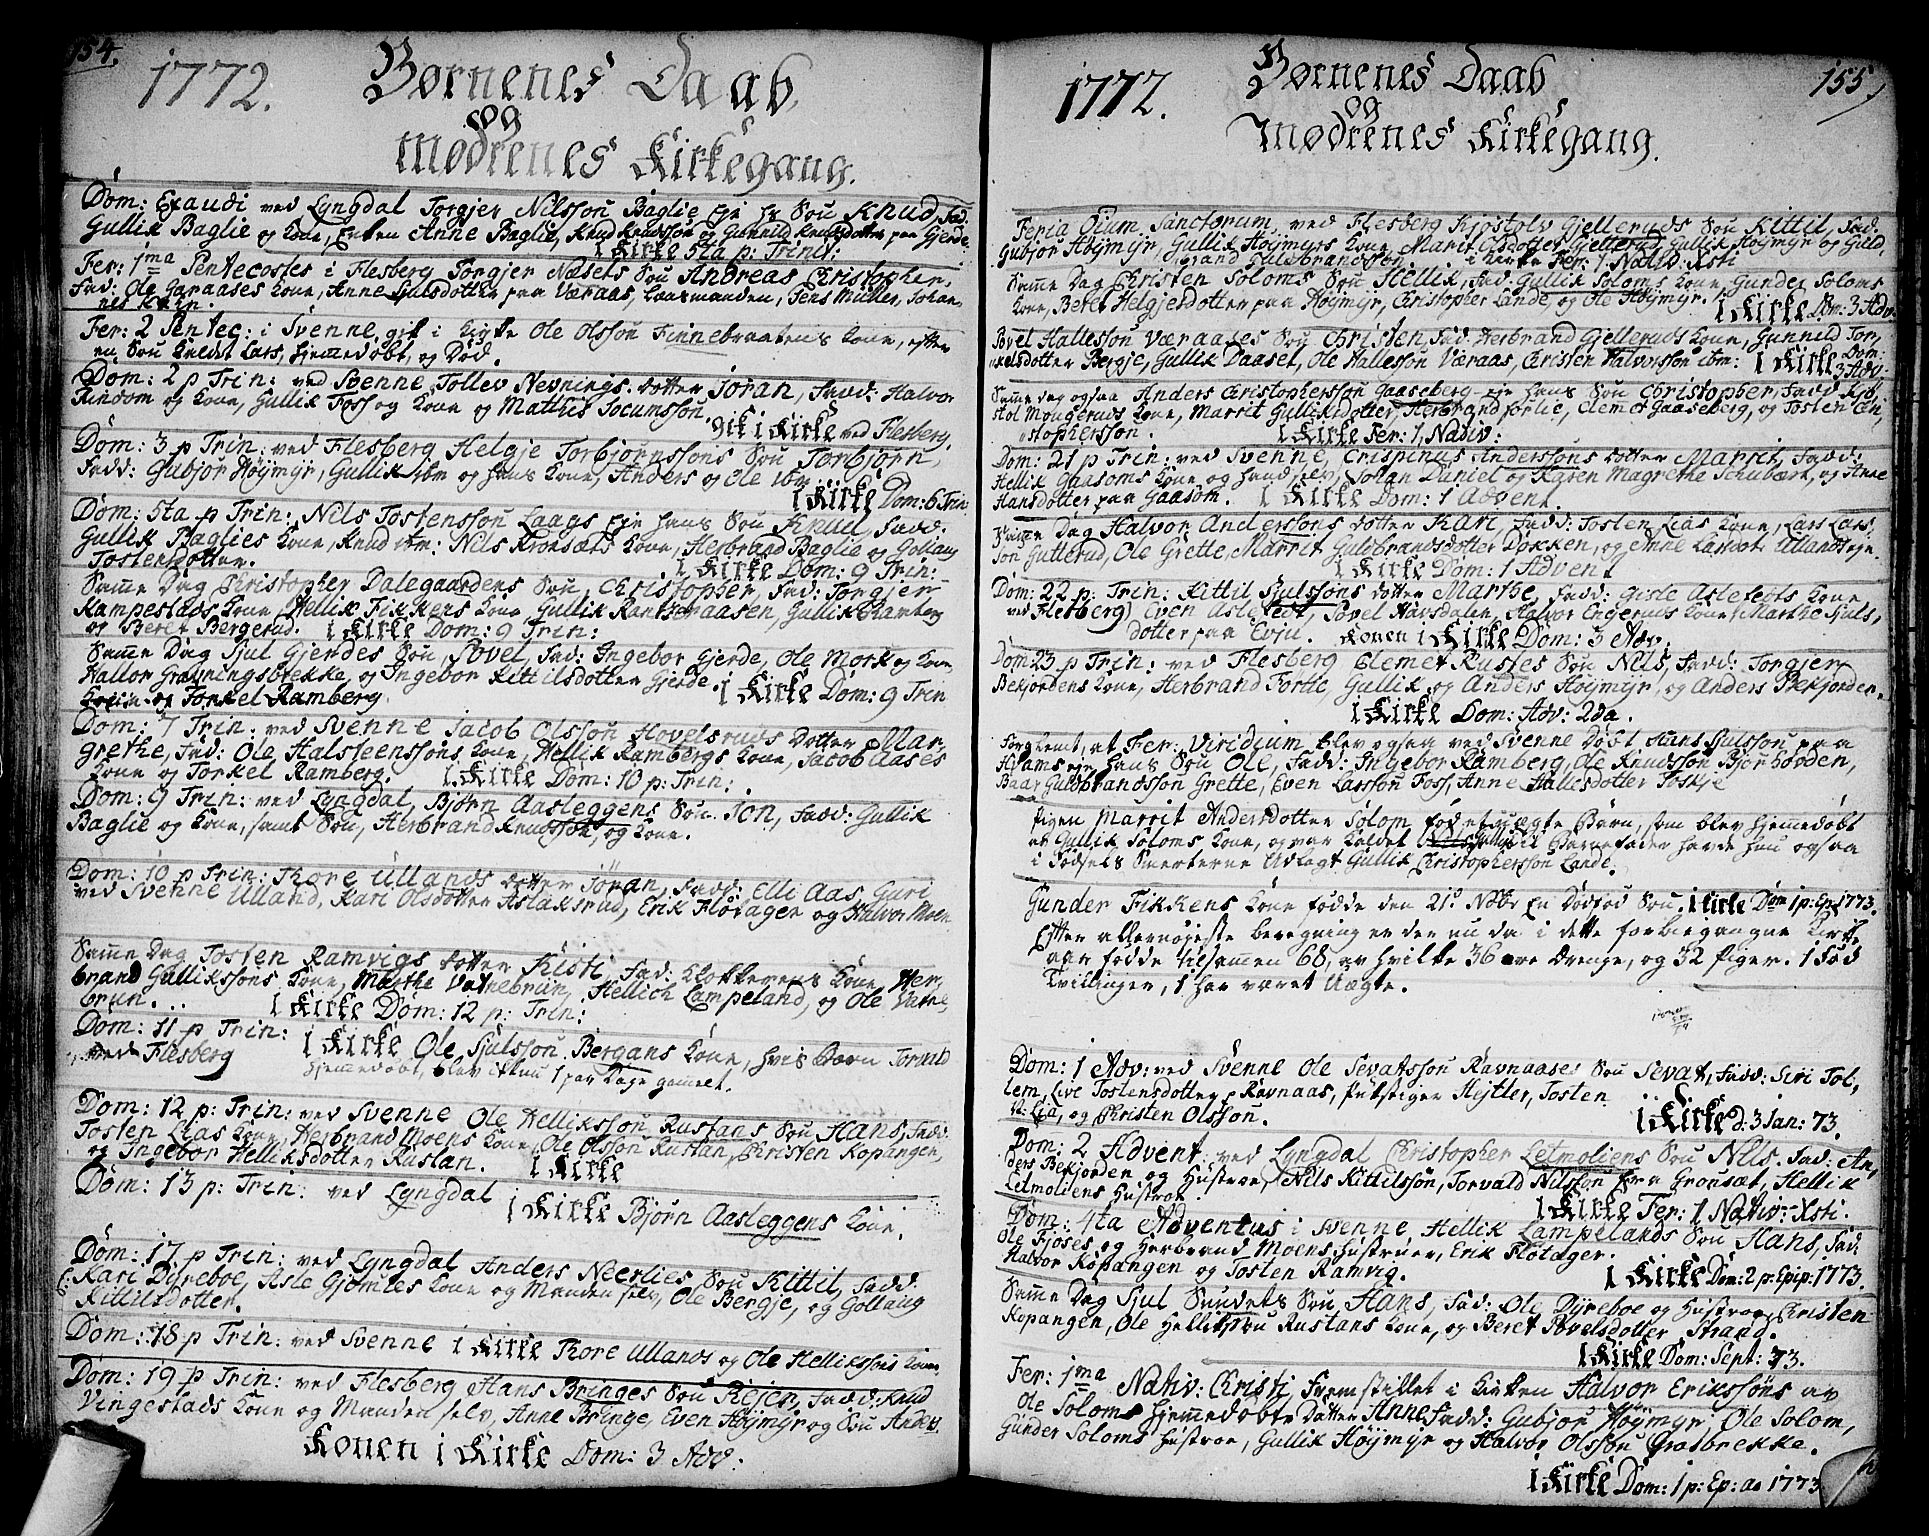 154.
1772. Børnenes Daab,
og
Mødrenes Kirkegang.
Dom: Exaudi ved Lyngdal Torgjer Nilssøn Baglie eje hs Søn Knud, Fad:
Gullik Baglie og Kone, Enken Anne Baglie, Knud Knudssøn og Gunnild Knudsdotter paa Gjerde
i Kirke 5ta p: Trinit:
Fer: 1ma Pentecostes i Flesberg Torgjer Næsets Søn Andreas Christopher,
Fad: Ole Garaases Kone, Anne Sjulsdotter paa Væraas, Laasmanden, Jens Müller, Johan,
nes Kein.
Fer: 2 Pentec: i Svenne, gik i Kirke Ole Olssøn Finnebraatens Kone, efter
en Søn kaldet Lars, hjemmedøbt, og Død.
Dom: 2 p Trin: ved Svenne Tollev Nevnings dotter Joran, Fadd: Halvor
Rindom og Kone, Gullik Foss og Kone og Matthis Jocumssøn.
gik i Kirke ved Flesberg.
Dom: 3 p Trin: ved Flesberg Helgje Torbjørnssøns Søn Torbjørn,
Fadd: Gubjør Høymyr, Gullik ibm og hans Kone, Anders og Ole ibm
i Kirke Dom: 6 Trin
Dom: 5ta p Trin: Nils Tostenssøn Laags Eje hans Søn Knud, Fadd:
Gullik Baglies Kone, Knud ibm: Nils Kronsæts Kone, Herbrand Baglie og Goliaug
Tostensdotter.
i Kirke Dom: 9 Trin:
Samme Dag Christopher Dalegaardens Søn, Christopher, Fad: Torgjer
Kampestads Kone, Hellik Fikkens Kone, Gullik Rantseraasen, Gullik
og Beret Bergerud. i Kirke Dom: 9 Trin:
Samme Dag Sjul Gjerdes Søn, Povel Fad: Ingebor Gjerde, Ole Mork og Kone,
Hallor Gravningsbrække, og Ingebor Kittilsdotter Gjerde. i Kirke Dom: 9 Trin
og Torkel Ramberg
Dom: 7 Trin: ved Svenne Jacob Olssøn Hovelsruds Dotter Mar-
grethe, Fad: Ole Halsteenssøns Kone, Hellik Rambergs Kone, Jacob Aases
Kone og Torkel Ramberg. i Kirke Dom: 10 p: Trin:
Dom: 9 Trin: ved Lyngdal, Bjørn Aasleggens Søn Jon, Fadd: Gullik
Baglie og Kone, samt Søn, Herbrand Knudssøn, og Kone.
Dom: 10 p Trin: Tore Ullands dotter Jøran, Fadd: Elli Aas, Guri
ved Svenne Ulland, Kari Olsdotter Aslaksrud, Erik Fløtager og Halvor Moen
Samme Dag Tosten Ramvigs dotter Kisti, Fad: Klokkerens Kone, Her-
brand Gullikssøns Kone, Marthe Vatnebrün, Hellich Lampeland, og Ole Vatne,
brün. i Kirke Dom: 12 p: Trin:
Dom: 11 p Trin: i Kirke Ole Sjulssøn Bergans Kone, hvis Barn Torvild
ved Flesberg hjemmedøbt, blev ikkun 1 par Dage gammelt.
Dom: 12 p: Trin: ved Svenne Ole Hellikssøn Rustans Søn Hans, Fad:
Tosten Lias Kone, Herbrand Moens Kone, Ole Olssøn Rustan, Christen Kopangen,
og Ingebor Helliksdotter Rustan. i Kirke
Dom: 13 p: Trin: ved Lyngdal i Kirke Bjørn Aasleggens Kone.
Dom: 17 p Trin: ved Lyngdal Anders Neerlies Søn Kittil, Fadd:
Kari Dyreboe, Asle Gjømles Kone og Manden selv, Ole Bergje, og Gollaug
Kittilsdotter.
Dom: 18 p Trin: ved Svenne i Kirke Tore Ullands og Ole Hellikssøns Kone
Dom: 19 p Trin: ved Flesberg Hans Bringes Søn Rejer, Fadd: Knud
Vingestads Kone og Manden selv, Anne Bringe, Even Høymyr og Søn Anders.
Konen i Kirke Dom: 3 Adv:
155
1772. Børnenes Daab
og
Mødrenes Kirkegang.
Feria Oium Sanctorum ved Flesberg Kjøstolv Gjelleruds Søn Kittil, Fad:
Gubjør Høymyr, Gullik Høymyrs Kone, Marit Olsdotter Gjellerud, Gullik Høymyr og Guld,
brand Guldbrandssøn. i Kirke Fer: 1 Nativ: Xsti
Samme Dag Christen Soloms Søn Hellik, Fad: Gullik Soloms Kone, Gunder Soloms
Kone, Beret Helgjersdotter paa Høymyr, Christopher Lande, og Ole Høymyr. i Kirke Dom: 3 Adv.
Povel Hallessøn Væraases Søn Christen, Fad: Herbrand Gjelleruds Kone, Gunnild Tor,
kelsdotter Bergje, Gullik Daaset, Ole Hallessøn Væraas, Christen Halvorssøn ibm: i Kirke Dom: 3 Adv.
Samme Dag ogsaa Anders Christopherssøn Gaaseberg eje hans Søn Christopher, Fadd Kjø,
stol Mougeruds Kone, Marrit Gulliksdotter, Herbrand Førlie, Clemet Gaaseberg, og Tosten Cri,
stophersson. i Kirke Fer: 1 Nativ:
Dom: 21 p Trin: ved Svenne, Crispinus Anderssøns dotter Marrit, Fadd:
Hellik Gaasoms Kone og hand selv, Johan Daniel og Karen Magrethe Schubært, og Anne
Hansdotter paa Gaasom. i Kirke Dom: 1 Advent.
Samme Dag Halvor Anderssøns dotter Kari, Fadd: Tosten Lias Kone, Lars Lars,
søn Gutterud, Ole Grette, Marrit Guldbrandsdotter Dokken, og Anne Larsdot: Ullandseje
i Kirke Dom: 1 Advent
Dom: 22 p: Trin: Kittil Sjulssøns dotter Marthe, Fadd: Gisle Aslefets Kone
ved Flesberg) Even Aslefet, Povel Havsdalen, Halvor Engeruds Kone, Marthe Sjuls,
dotter paa Evju. Konen i Kirke Dom: 3 Adv.
Dom 23 p Trin: ved Flesberg Clemet Rustes Søn Nils, Fadd: Torgjer
Bekjordens Kone, Herbrand Førlie, Gullik og Anders Høymyr, og Anders Bekjorden.
i Kirke Dom: Adv: 2da.
Forglemt, at Fer: Viridium blev ogsaa ved Svenne Døbt, Hans Sjulssøn paa
Hvams eje hans Søn Ole, Fadd: Ingebor Ramberg, Ole Knudssøn Bjørhovden,
Baar Guldbrandssøn Grette, Even Larssøn Foss, Anne Hallesdotter Foskje
Pigen Marrit Andersdotter Solom, fødet uægte Børn, som blev hjemmedøbt
av Gullik Soloms Kone, og var kaldet til Barnefader havde hun ogsaa
i Fødsels Smerterne Udlagt Gullik Christopherssøn Lande.
Gunder Fikkens Kone fødde den 21de Novbr En Dødfød Søn. i Kirke Dom 1 p: Ep 1773.
Efter allernøjeste beregning er der nu da i dette forbiegangne Kirke
aar fødde tilsamen 68, av hvilke 36 ere Drenge, og 32 Piger. 1 Sød
Tvillinger, 1 har været Uægte.
Dom: 1 Adv: ved Svenne Ole Sevatssøn Ravnaases Søn Sevat, Fadd: Siri Tol,
lem, Live Tostensdotter, Ravnaas, Pukstiger Hejtler, Tosten
Lia, og Christen Olssøn. i Kirke d: 3 Jan: 73.
Dom: 2 Advent: ved Lyngdal Christopher Letmoliens Søn Nils, Fad: An,
ders Bekjorden og Hustroe, Nils Kittilssøn, Torvald Nilssøn fra Gronsæt, Hellik
Letmoliens Hustroe. i Kirke Fer: 1 Nativ: Xsti.
Dom: 4ta Adventus i Svenne, Hellik Lampelands Søn Hans, Fad:
Ole Fjøses og Herbrand Moens Hustruer, Erik Fløtager.
Halvor Kopangen og Tosten Ramvig. i Kirke Dom: 2 p: Epip: 1773.
Samme Dag Sjul Sundets Søn, Hans, Fad: Ole Dyreboe og Hustroe, Christen
Kopangen, Ole Hellikssøn Rustans Kone, og Beret Povelsdotter Strand.
i Kirke Dom: Sept: 73.
Fer: 1ma Nativ: Christi, Fremstillet i Kirken Halvor Erikssøns av
Ole Soloms hjemmedøbte Datter Anne Fadd: Gubjør Høymyr, Ole Solom,
Gunder Soloms Hustroe, Gullik Høymyr og Halvor Olssøn Bratbrekke.
i Kirke Dom: 1 p: Ep: ao 1773